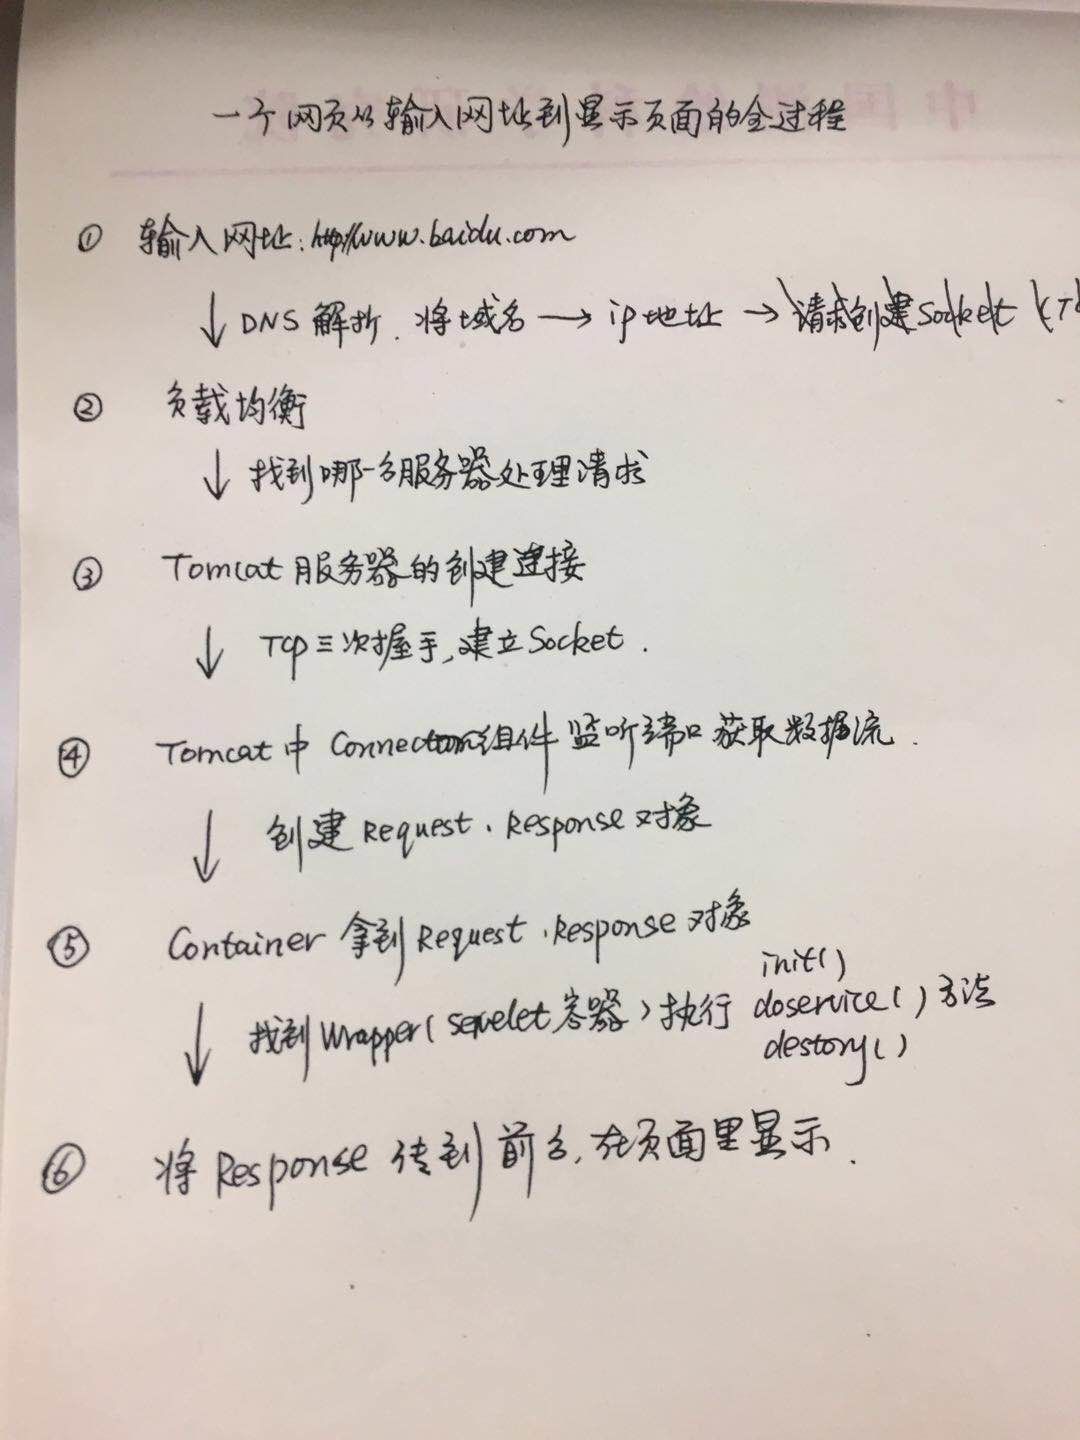 一个网页从输入网址到显示页面的全过程
① 输入网址:http://www.baidu.com
↓ DNS 解析. 将域名 → ip地址 → 请求创建Socket (TC
② 负载均衡
↓ 找到哪一台服务器处理请求
③ Tomcat 服务器的创建连接
↓ Tcp三次握手,建立Socket.
④ Tomcat中 Connector组件 监听端口 获取数据流.
↓ 创建 Request、Response对象
⑤ Container 拿到 Request、Response 对象
↓ 找到Wrapper(servelet容器)执行 init() doservice() destory() 方法
⑥ 将 Response 传到前台,在页面里显示.